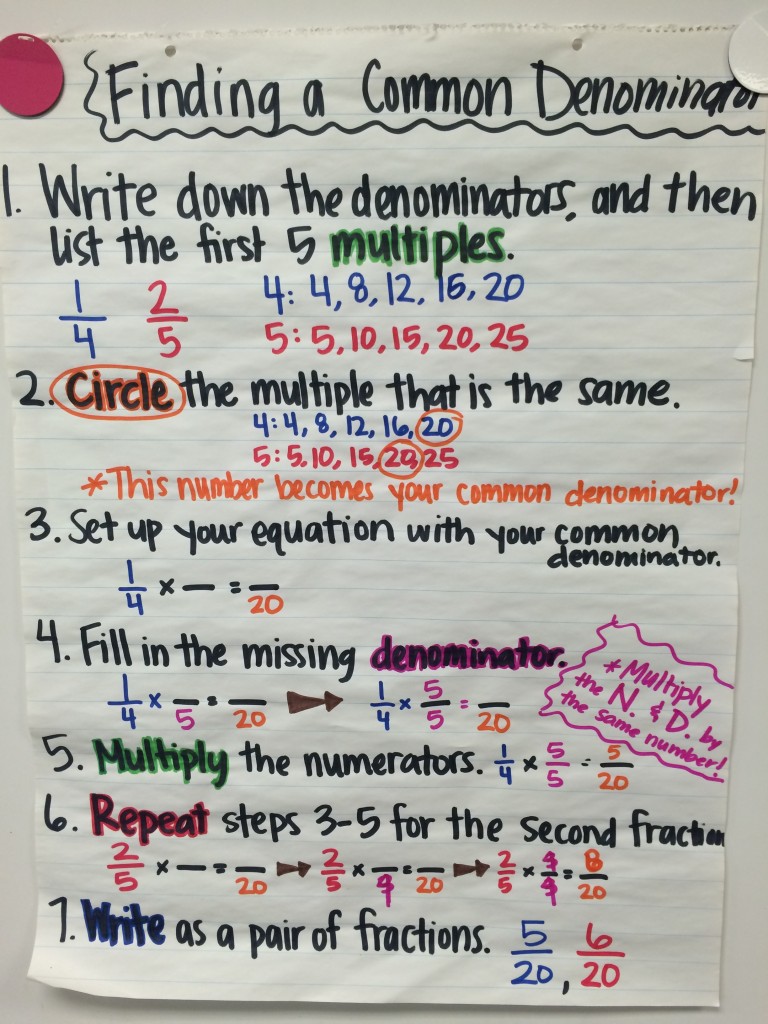 Finding a Common Denominator
1. Write down the denominators, and then
list the first 5 multiples.
1/4 2/5 4: 4, 8, 12, 16, 20
5: 5, 10, 15, 20, 25
2. Circle the multiple that is the same.
4: 4, 8, 12, 16, 20
5: 5, 10, 15, 20, 25
*This number becomes your common denominator!
3. Set up your equation with your common
denominator.
1/4 × — = —/20
4. Fill in the missing denominator.
1/4 × —/5 = —/20 → 1/4 × 5/5 = —/20
*Multiply
the N. & D. by
the same number!
5. Multiply the numerators. 1/4 × 5/5 = 5/20
6. Repeat steps 3-5 for the second fraction
2/5 × — = —/20 → 2/5 × —/4 = —/20 → 2/5 × 4/4 = 8/20
7. Write as a pair of fractions. 5/20, 6/20